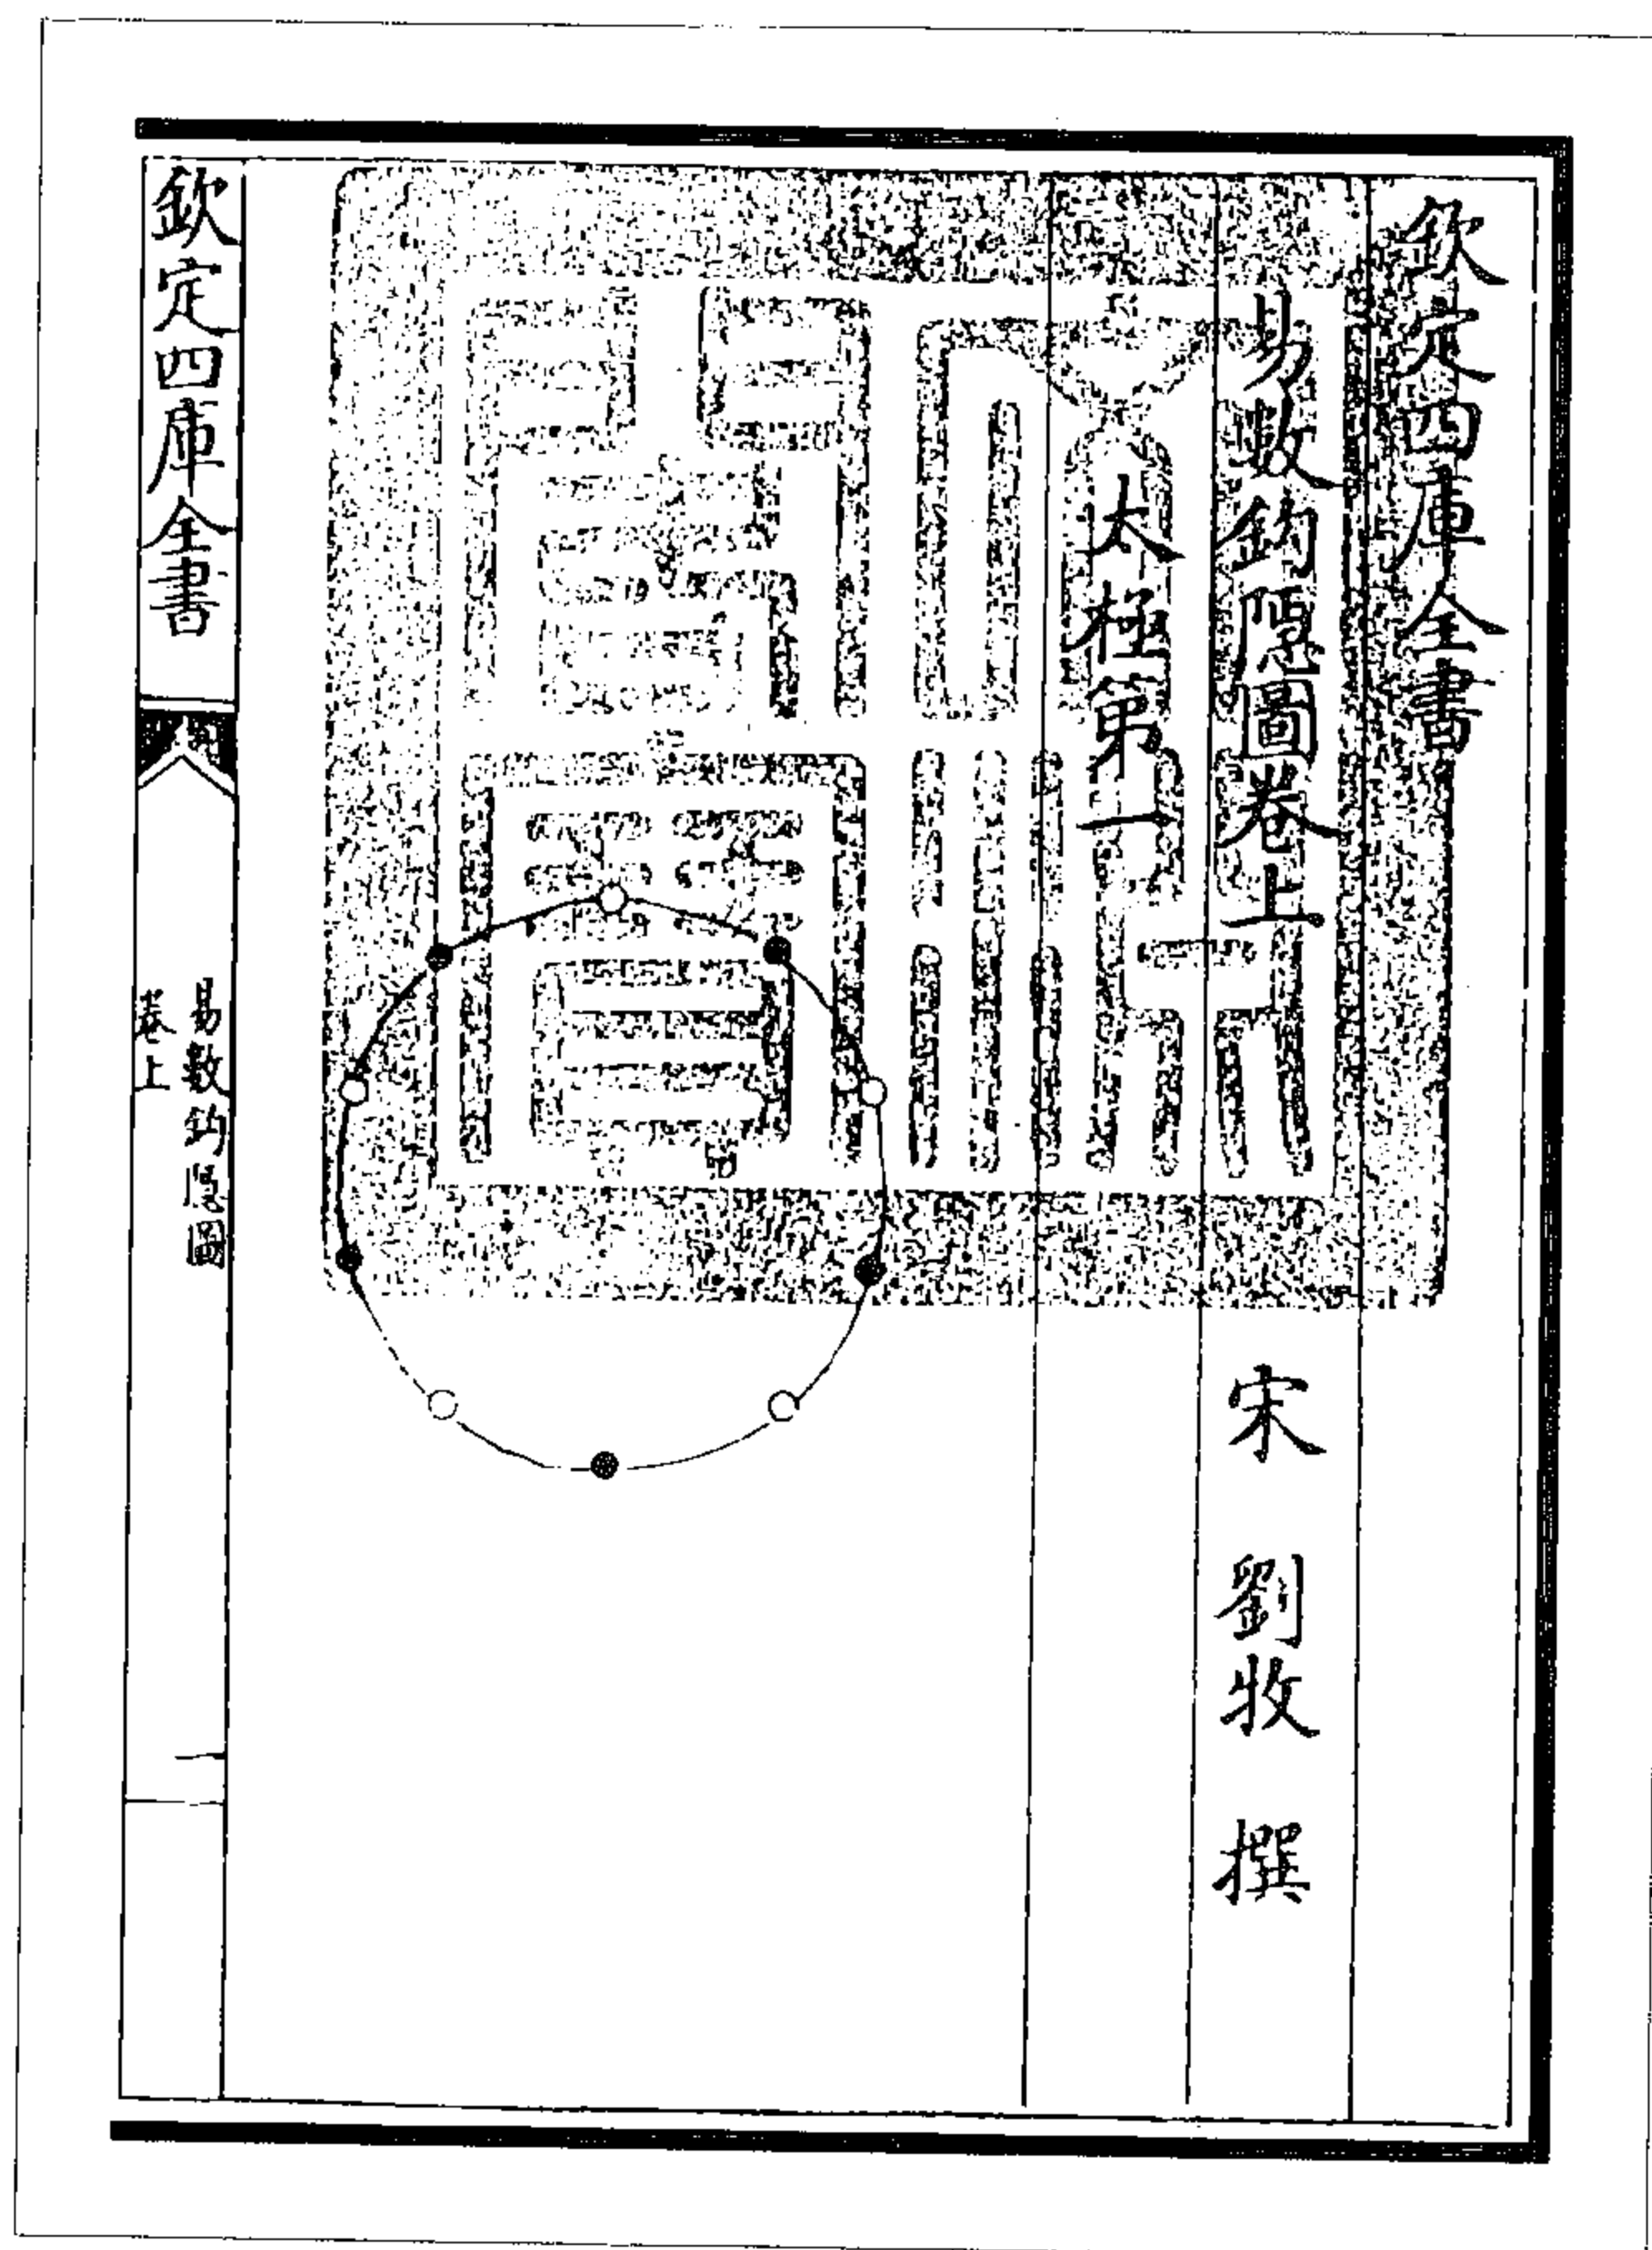 欽定四庫全書
易數鈎隠圖卷上
宋 劉牧 撰
太極第一
欽定四庫全書
易數鈎隠圖
卷上
一